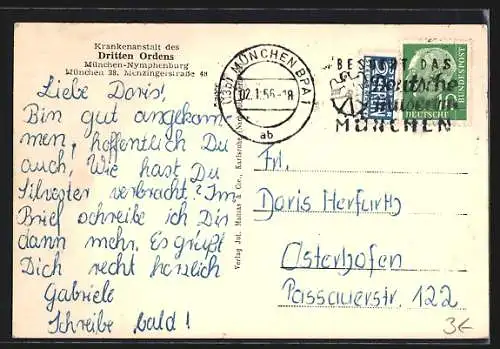 Krankenanstalt des
Dritten Ordens
München-Nymphenburg
München 38, Menzingerstraße 48
Liebe Doris!
Bin gut angekom-
men, hoffentlich Du
auch, Wie hast Du
Silvester verbracht? Im
Brief schreibe ich Dir
dann mehr. Es grüßt
Dich recht herzlich
Gabriele
Schreibe bald!
(13b) MÜNCHEN BPA 1
02.1.56-18
ab
BESUCHT DAS
Deutsche
Museum
MÜNCHEN
DEUTSCHE
BUNDESPOST
Verlag Jul. Manias & Co., Karlsruhe
Frl.
Doris Herfurth
Osterhofen
Passauerstr. 122
3€